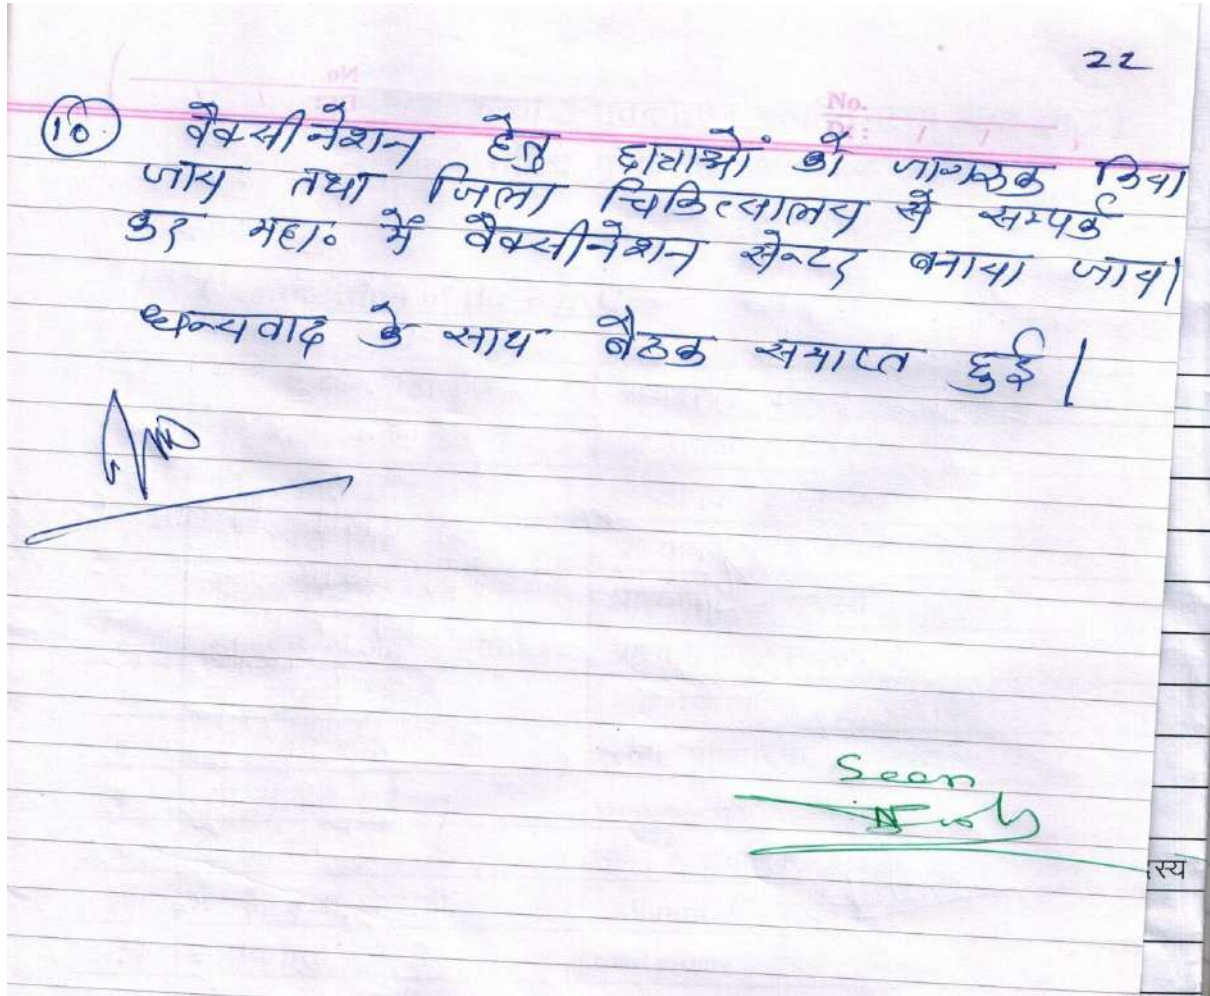 22
No.
Dt : / /
⑩ वैक्सीनेशन हेतु छात्राओं को जागरूक किया
जाय तथा जिला चिकित्सालय से सम्पर्क
कर महा० में वैक्सीनेशन सेन्टर बनाया जाय।
धन्यवाद के साथ बैठक समाप्त हुई।
Seen
स्य